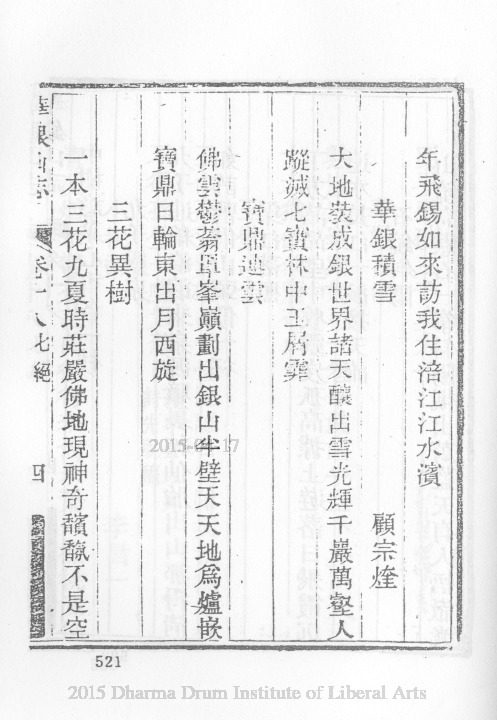 年飛錫如來訪我住涪江江水濱
華銀積雪 顧宗煃
大地裝成銀世界諸天釀出雪光輝千巖萬壑人
蹤滅七寶林中玉屑霏
寶鼎連雲
佛雲鬱蓊罩峯巔劃出銀山半壁天天地爲爐嵌
寶鼎日輪東出月西旋
三花異樹
一本三花九夏時莊嚴佛地現神奇馩馧不是空
華銀山志 卷十八七絕 四
521
2015-04-17
2015 Dharma Drum Institute of Liberal Arts